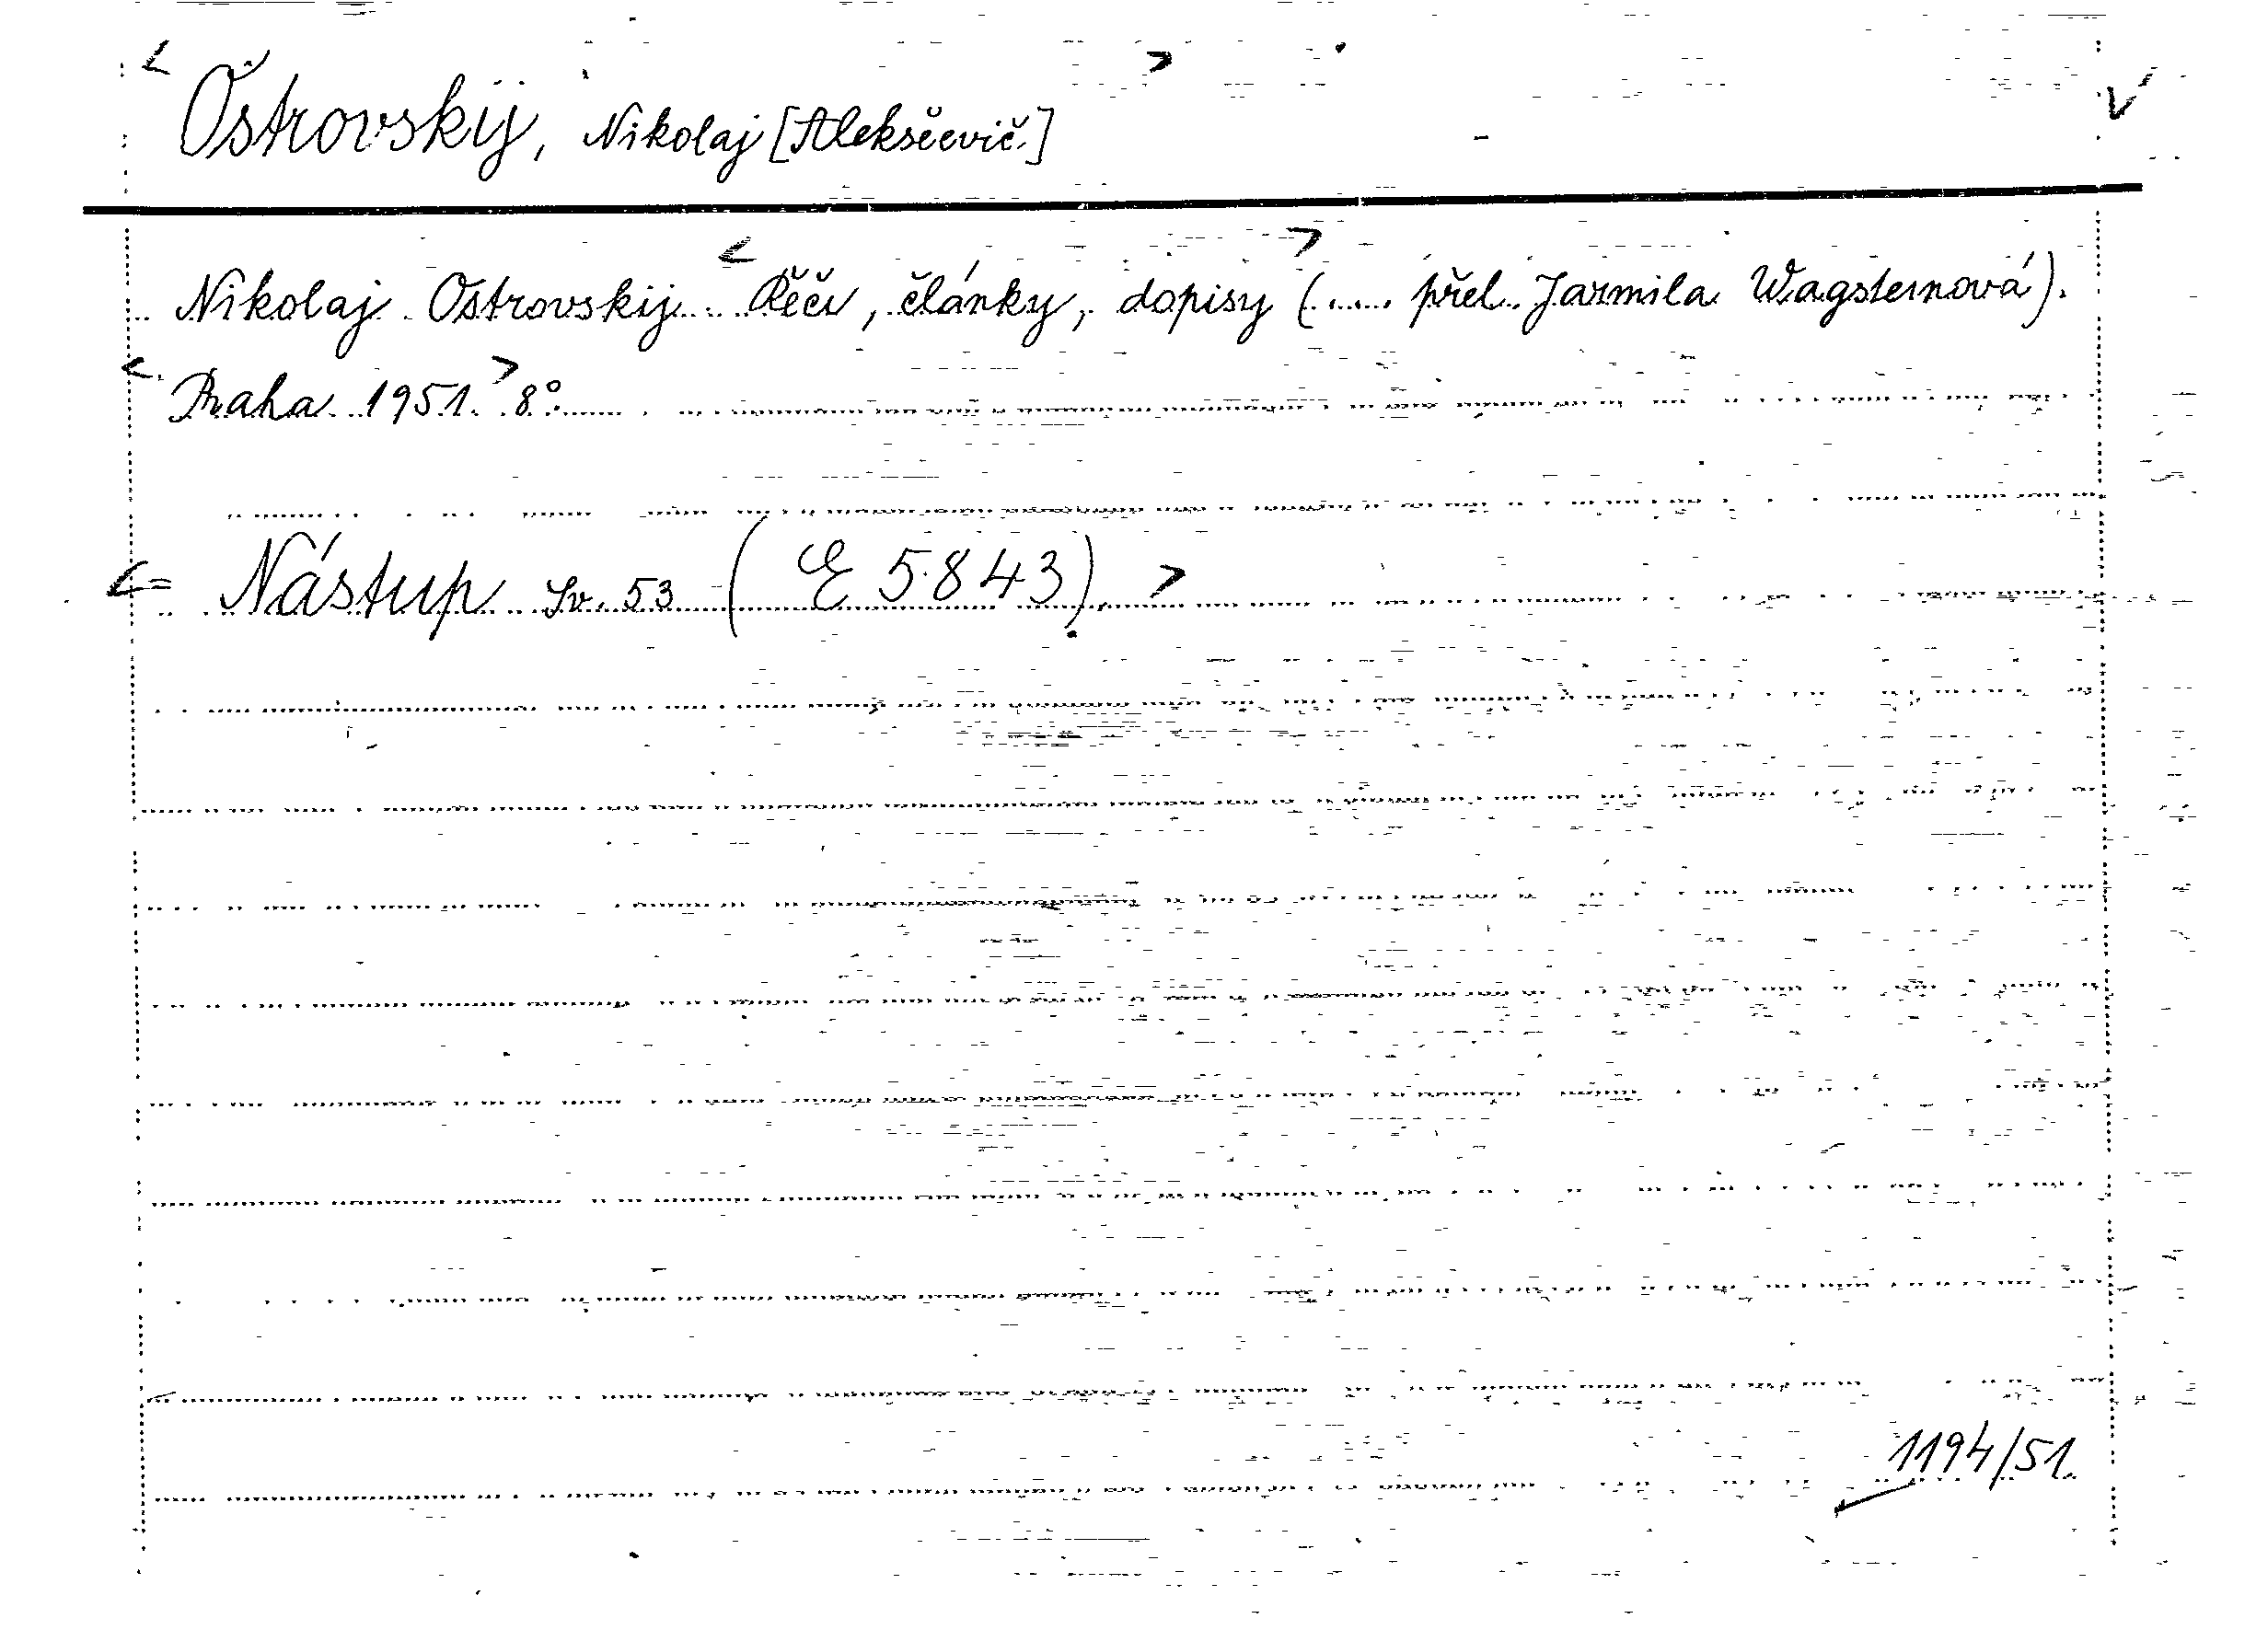 < Ostrovskij, Nikolaj [Aleksěevič.] > V
Nikolaj Ostrovskij < Řěči, články, > dopisy (..... přel. Jarmila Wagsteinová).
< Praha 1951. > 8°.
<= Nástup Sv. 53 ( E 5843). >
1194/51.